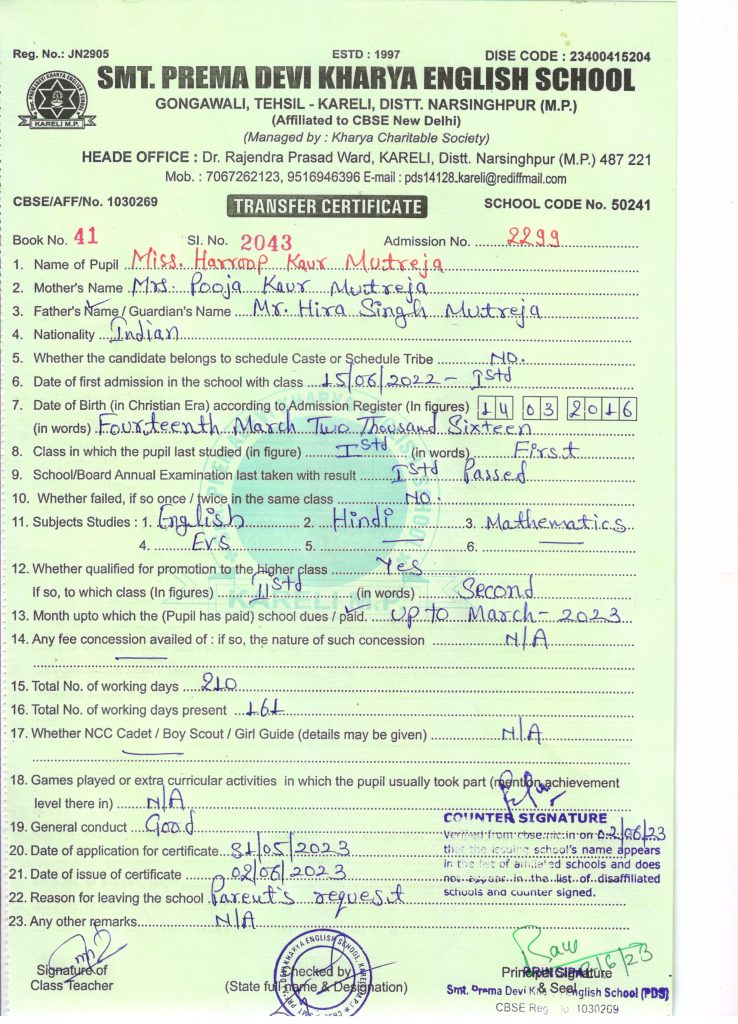 Reg. No.: JN2905 ESTD : 1997 DISE CODE : 23400415204
SMT. PREMA DEVI KHARYA ENGLISH SCHOOL
GONGAWALI, TEHSIL - KARELI, DISTT. NARSINGHPUR (M.P.)
(Affiliated to CBSE New Delhi)
(Managed by : Kharya Charitable Society)
KARELI M.P.
HEADE OFFICE : Dr. Rajendra Prasad Ward, KARELI, Distt. Narsinghpur (M.P.) 487 221
Mob. : 7067262123, 9516946396 E-mail : pds14128.kareli@rediffmail.com
CBSE/AFF/No. 1030269 TRANSFER CERTIFICATE SCHOOL CODE No. 50241
Book No. 41 Sl. No. 2043 Admission No. 2299
1. Name of Pupil Miss. Harroop Kaur Mutreja
2. Mother's Name Mrs. Pooja Kaur Mutreja
3. Father's Name / Guardian's Name Mr. Hira Singh Mutreja
4. Nationality Indian
5. Whether the candidate belongs to schedule Caste or Schedule Tribe NO.
6. Date of first admission in the school with class 15/06/2022 - Istd
7. Date of Birth (in Christian Era) according to Admission Register (In figures) 14 03 2016
(in words) Fourteenth March Two Thousand Sixteen
8. Class in which the pupil last studied (in figure) Istd (in words) First
9. School/Board Annual Examination last taken with result Istd Passed
10. Whether failed, if so once / twice in the same class NO.
11. Subjects Studies : 1. English 2. Hindi 3. Mathematics
4. EVS 5. 6.
12. Whether qualified for promotion to the higher class Yes
If so, to which class (In figures) IIstd (in words) Second
KARELI M.P.
13. Month upto which the (Pupil has paid) school dues / paid. Up to March - 2023
14. Any fee concession availed of : if so, the nature of such concession N/A
15. Total No. of working days 210
16. Total No. of working days present 161
17. Whether NCC Cadet / Boy Scout / Girl Guide (details may be given) N/A
18. Games played or extra curricular activities in which the pupil usually took part (mention achievement
level there in) N/A
COUNTER SIGNATURE
19. General conduct Good
Verified from cbse.nic.in on 02/06/23
20. Date of application for certificate 31/05/2023
that the issuing school's name appears
in the list of affiliated schools and does
21. Date of issue of certificate 02/06/2023
not appear in the list of disaffiliated
22. Reason for leaving the school Parent's request
schools and counter signed.
23. Any other remarks N/A
Signature of Checked by Principal Signature
Class Teacher (State full name & Designation) & Seal
PRINCIPAL
Smt. Prema Devi English School (PDS)
CBSE Reg 1030269